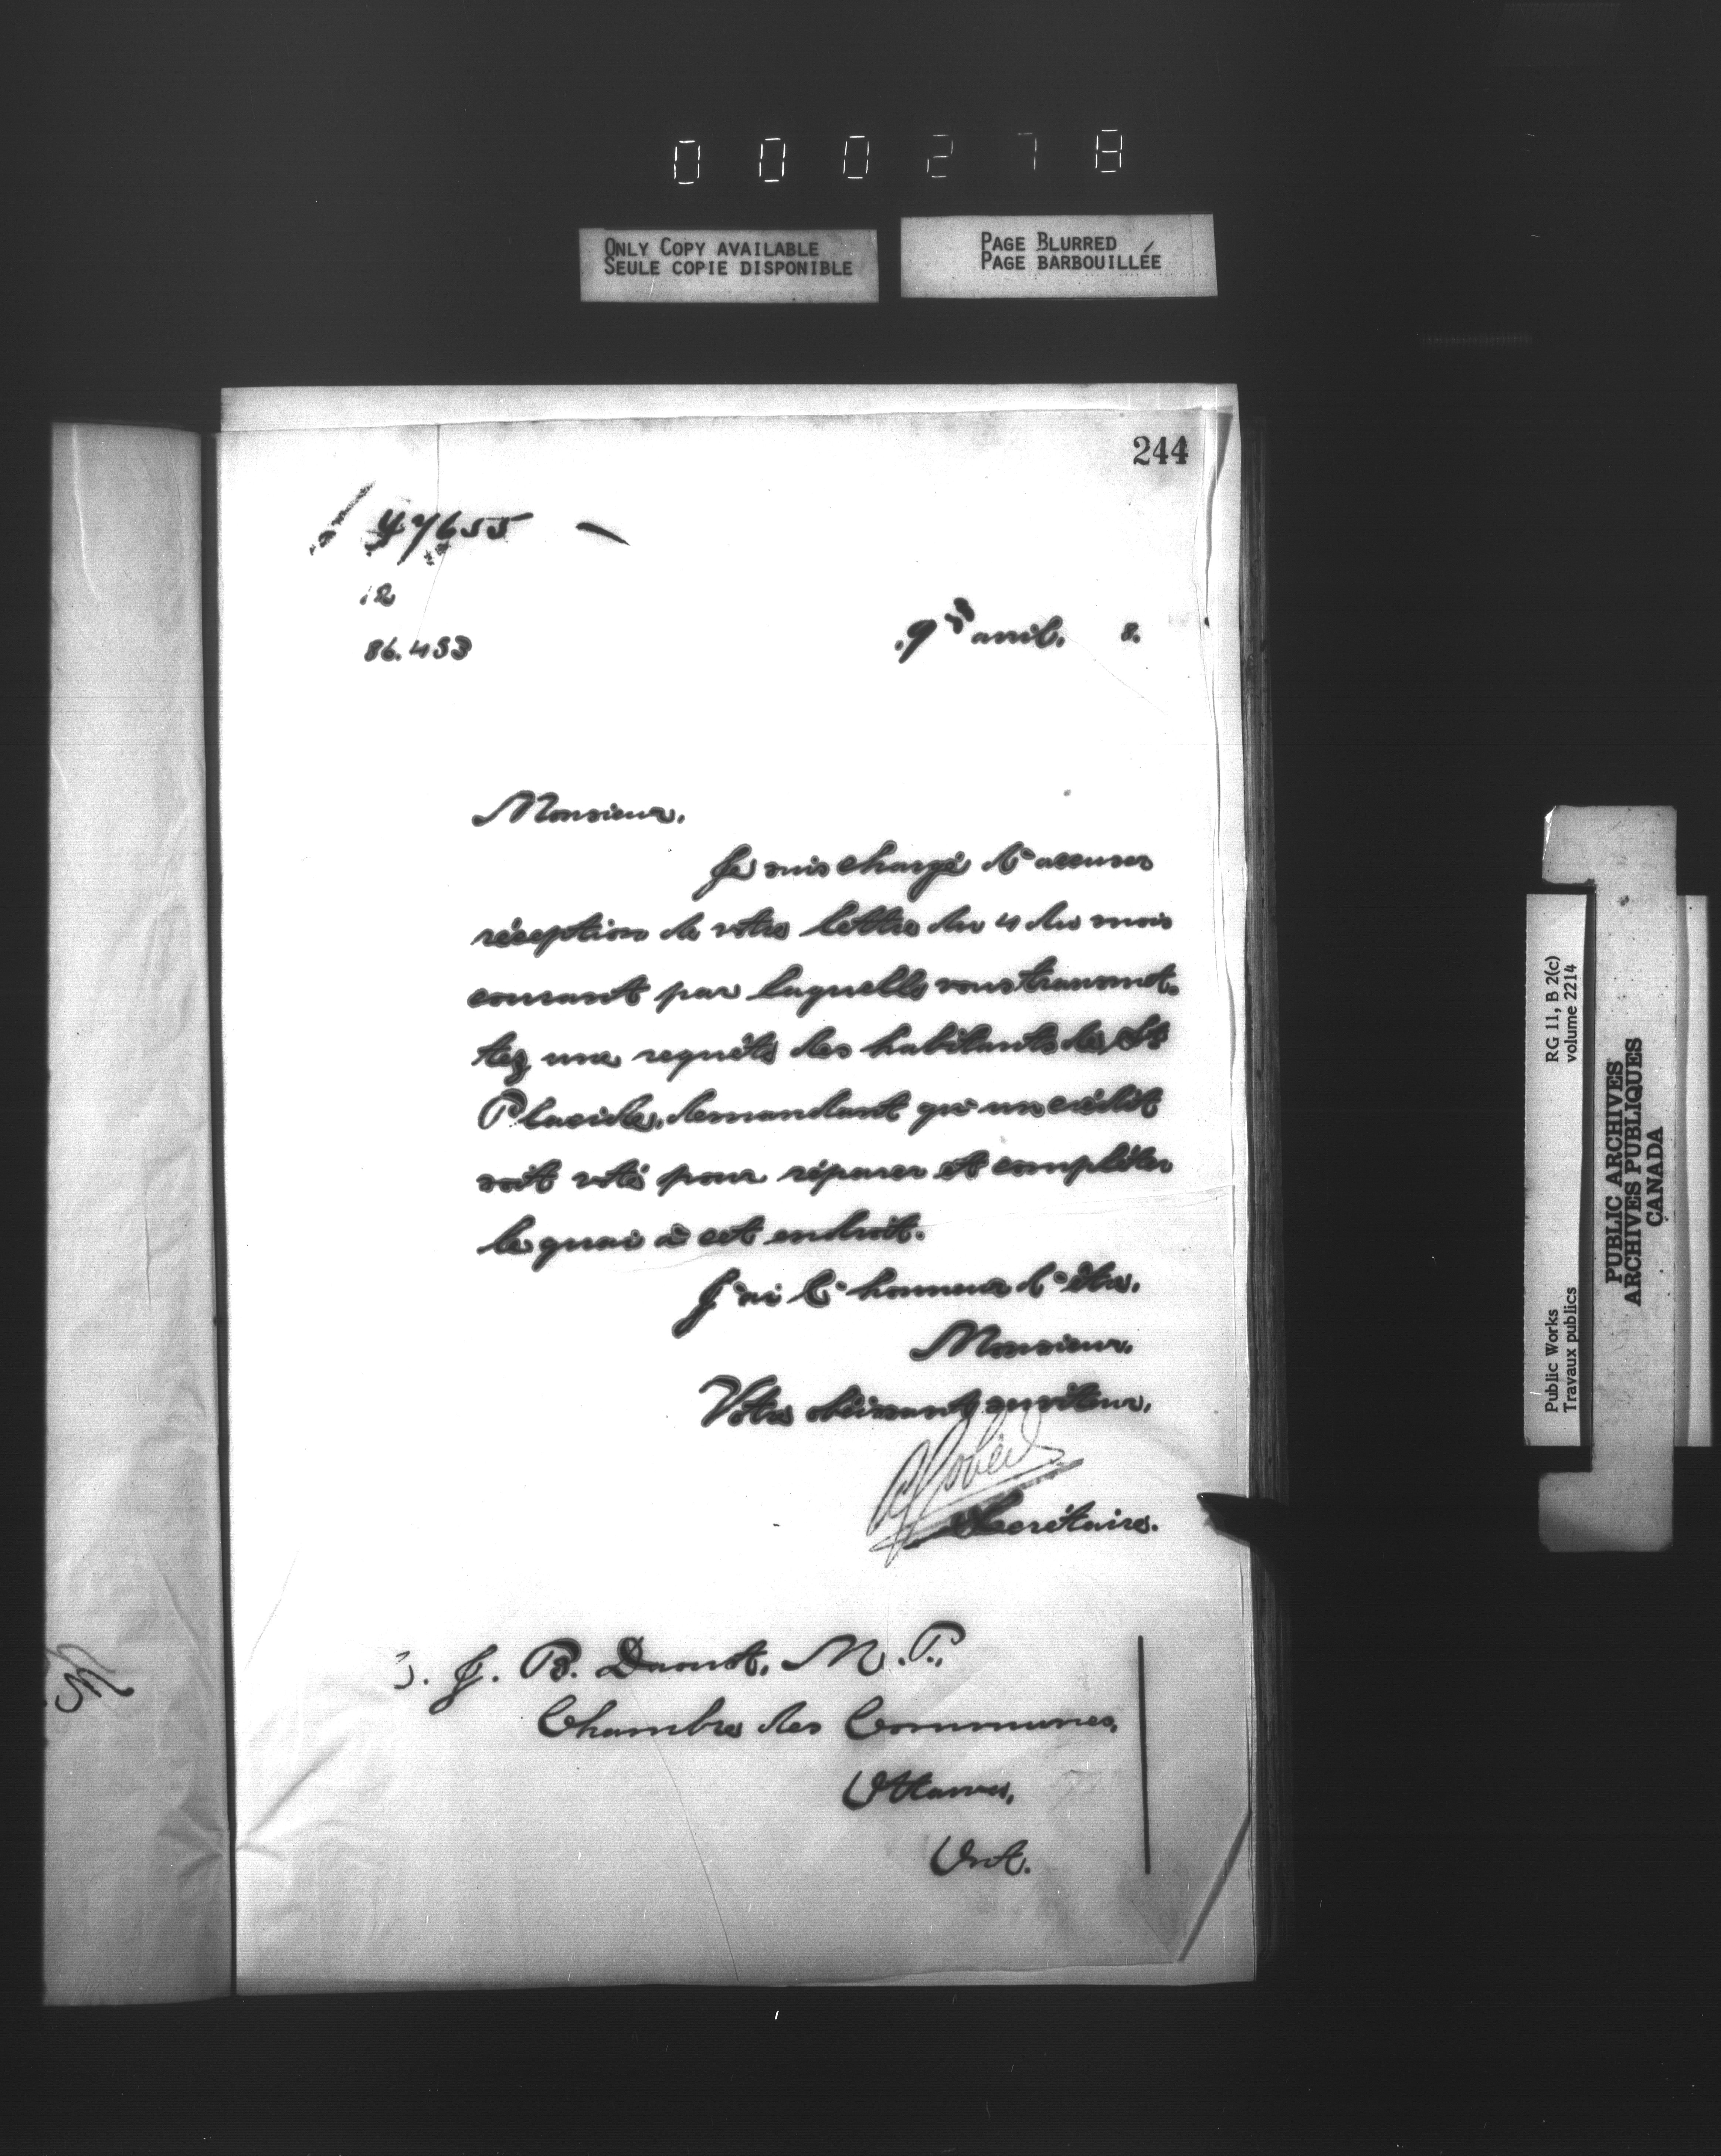 000278
ONLY COPY AVAILABLE
SEULE COPIE DISPONIBLE
PAGE BLURRED
PAGE BARBOUILLÉE
244
47655
12
86.433
9 avril. 8.
Monsieur,
Je suis chargé d'accuser
réception de votre lettre du 4 du mois
courant par laquelle vous transmet-
tez une requête des habitants de St
Placide, demandant qu'un crédit
soit voté pour réparer et compléter
le quai à cet endroit.
J'ai l'honneur d'être,
Monsieur,
Votre obéissant serviteur,
Secrétaire.
J. B. Daoust, M. P.,
Chambre des Communes,
Ottawa,
Ont.
Public Works
Travaux publics
RG 11, B 2(c)
volume 2214
PUBLIC ARCHIVES
ARCHIVES PUBLIQUES
CANADA